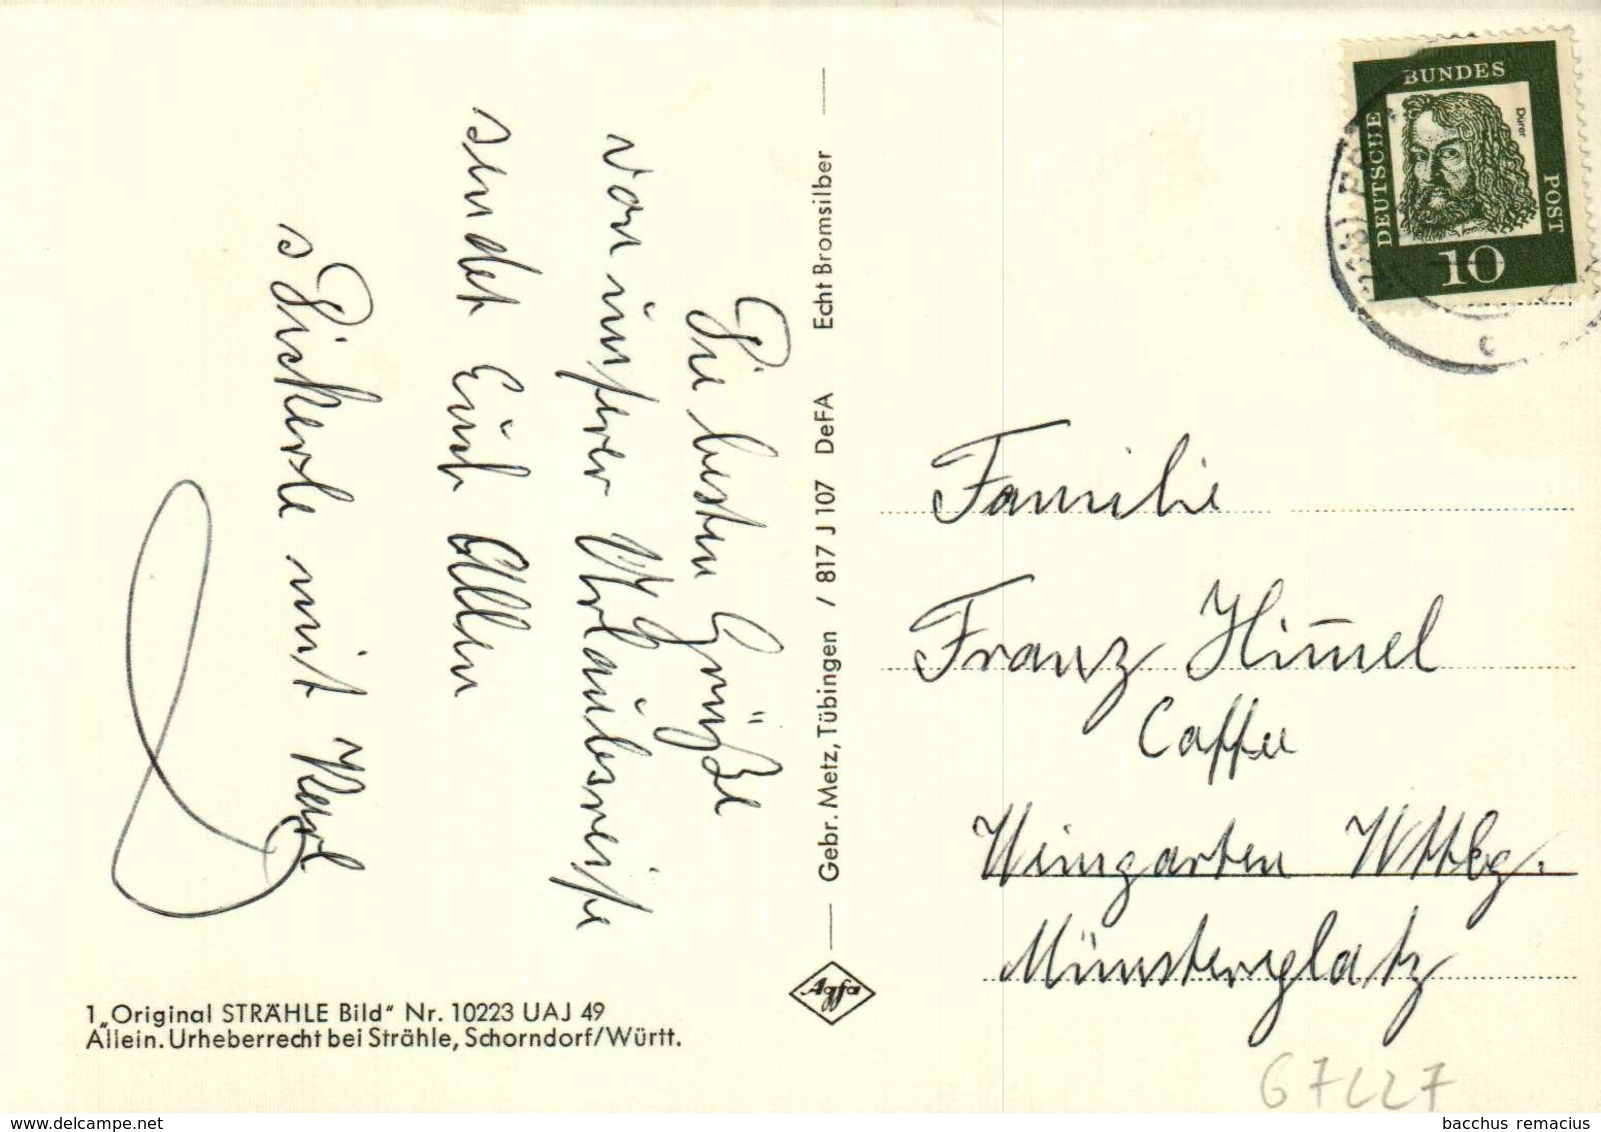 Die besten Grüße
von unserer Urlaubsreise
sendet Euch Allen
s Pickerle mit Karl
Gebr. Metz, Tübingen / 817 J 107 DeFA Echt Bromsilber
Agfa
1 „Original STRÄHLE Bild" Nr. 10223 UAJ 49
Allein. Urheberrecht bei Strähle, Schorndorf/Württ.
DEUTSCHE
BUNDES
POST
Dürer
10
c
Familie
Franz Him̄el
Caffee
Weingarten Wttbg.
Münsterplatz
67227
bacchus remacius